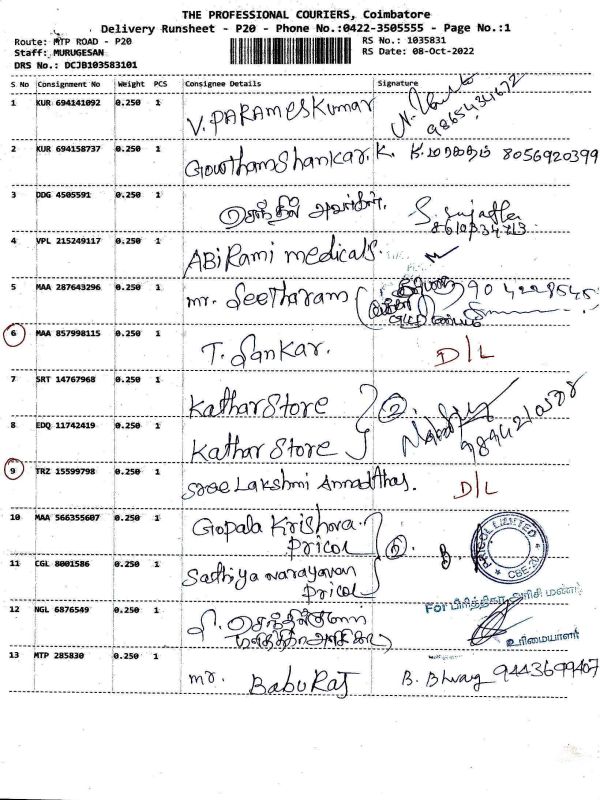 THE PROFESSIONAL COURIERS, Coimbatore
Delivery Runsheet - P20 - Phone No.:0422-3505555 - Page No.:1
Route: MTP ROAD - P20
RS No.: 1035831
Staff: MURUGESAN
RS Date: 08-Oct-2022
DRS No.: DCJB103583101
S No Consignment No Weight PCS Consignee Details Signature
1 KUR 694141092 0.250 1 V. PARAMESKumar
2 KUR 694158737 0.250 1 GowthamShankar. K. K. மரகதம் 8056920399
3 DDG 4505591 0.250 1 செந்தில் அவர்கள். S. Sujatha
4 VPL 215249117 0.250 1 ABiRami medicals.
5 MAA 287643296 0.250 1 mr. Seetharam
6 MAA 857998115 0.250 1 T. Sankar. D/L
7 SRT 14767968 0.250 1 Kathar Store
8 EDQ 11742419 0.250 1 Kathar Store
9 TRZ 15599798 0.250 1 Sree Lakshmi D/L
10 MAA 566355607 0.250 1 Gopala Krishna.
Pricol
PRICOL LIMITED
CBE-20
11 CGL 8001586 0.250 1 Sathiya Narayanan
Pricol
12 NGL 6876549 0.250 1
For பிரித்திகா அரிசி மண்டி
உரிமையாளர்
13 MTP 285830 0.250 1 mr. Babu Raj 9443699407